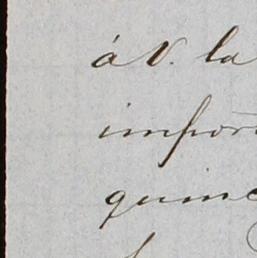 á V. la
impor
quinc